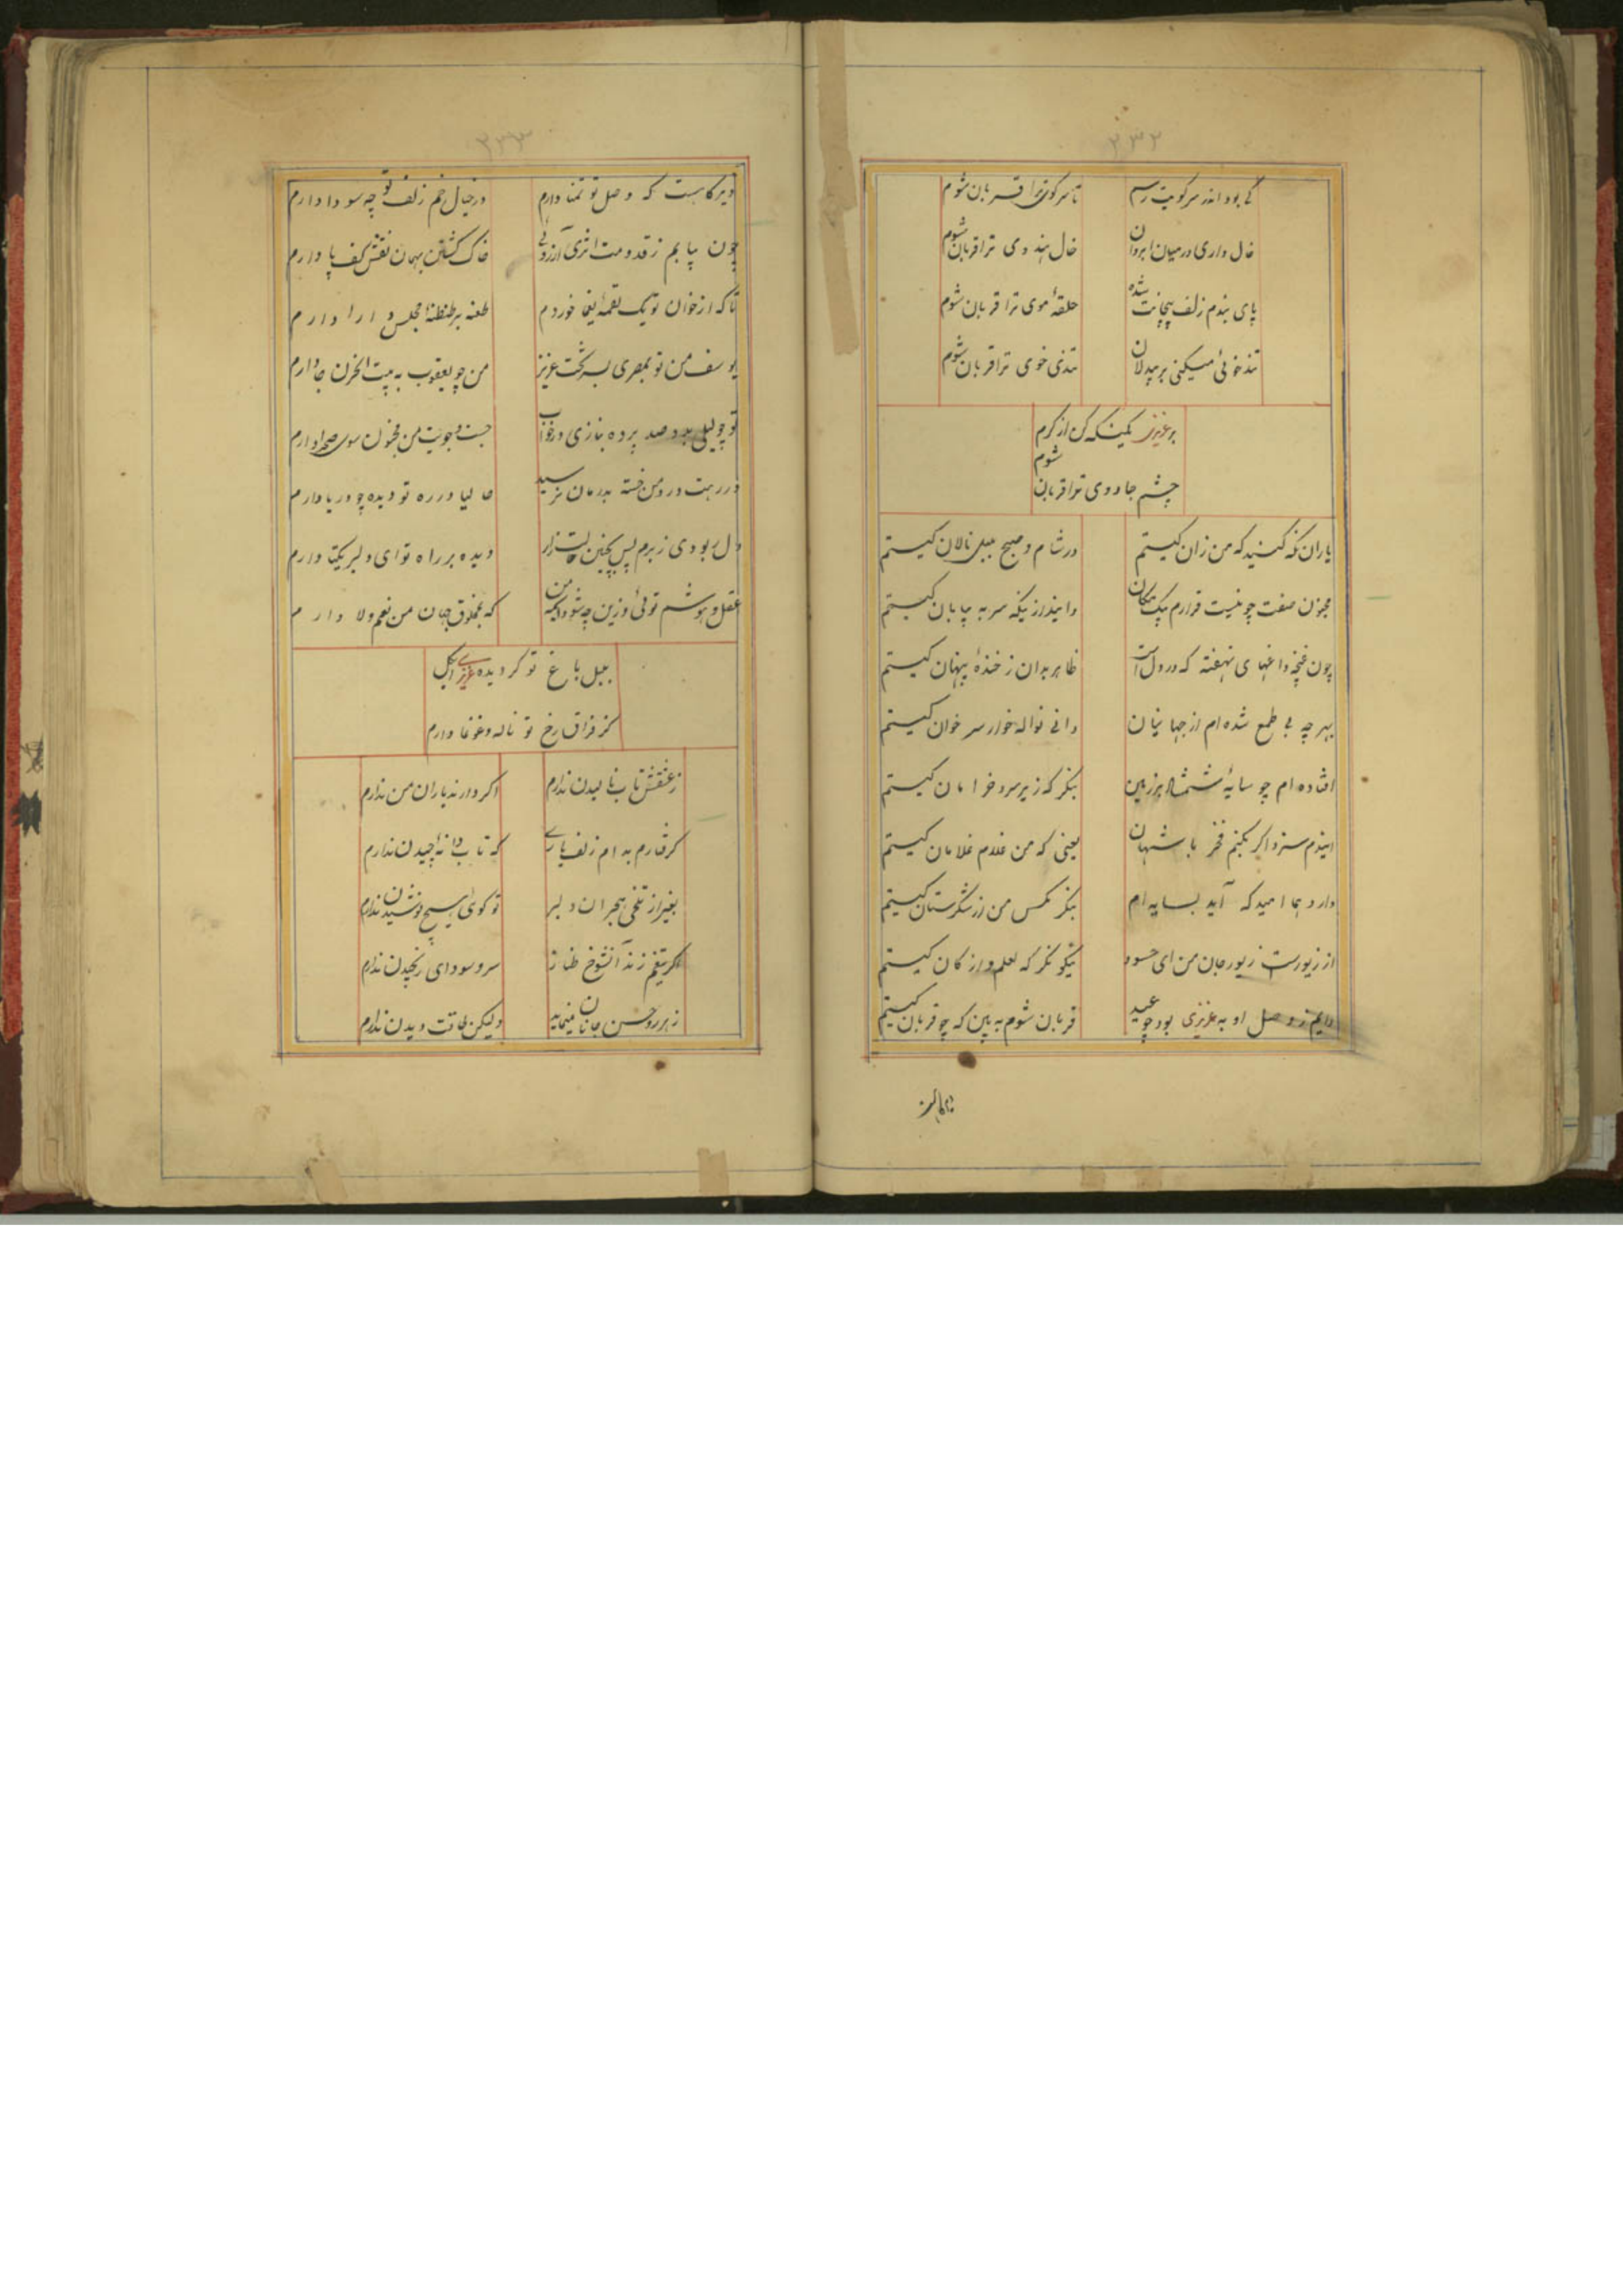 ۲۳۲
کی بود اندر سر کویت رسم تا سر کوی ترا قربان شوم
خال داری در میان ابروان خال هندوی ترا قربان شوم
پای بندم زلف پیچانت شده حلقهٔ موی ترا قربان شوم
تندخوئی میکنی بر بیدلان تندی خوی ترا قربان شوم
بر عزیزی یک نگه کن از کرم
چشم جادوی ترا قربان شوم
یاران نگه کنید که من زان کیستم در شام و صبح بلبل نالان کیستم
مجنون صفت چو نیست قرارم بیک مکان دانید از نیکه سر به بیابان کیستم
چون غنچه داغهای نهفته که در دل است ظاهر بدان ز خندهٔ پنهان کیستم
بهر چه بی طمع شده ام از جهانیان دانی نواله خوار سر خوان کیستم
افتاده ام چو سایهٔ شمشاد بر زمین بنگر که زیر سرو خرامان کیستم
ایندم سزد اگر بکنم فخر با شهان یعنی که من غلام غلامان کیستم
دارد هما امید که آید بسایه ام بنگر مگس من از شکرستان کیستم
از زیورست زیور جان من ای حسود نیکو نگر که لعلم و از کان کیستم
دایم ز وصل او به عزیزی بود چو عید قربان شوم به بین که چو قربان کیستم
۲۳۳
دیرگاهست که وصل تو تمنا دارم در خیال خم زلف تو چه سودا دارم
چون بیابم ز قدومت اثری آرزوئی خاک گشتن بهمان نقش کف پا دارم
تا که از خوان تو یک لقمهٔ یغما خوردم طعنه بر طنطنهٔ مجلس دارا دارم
یوسف من تو بمصری بسر تخت عزیز من چو یعقوب به بیت الحزن جا دارم
تو چو لیلی بدو صد پرده بنازی در خواب جست وجویت من مجنون سوی صحرا دارم
در رهت درد من خسته بدرمان نرسید حالیا در ره تو دیده چو دریا دارم
دل ربودی ز برم پس بچنین حالت زار دیده بر راه تو ای دلبر یکتا دارم
عقل و هوشم توئی وزین چه شود به من که بمخلوق جهان من نعم و لا دارم
بلبل باغ تو گردیده عزیزی ای گل
کز فراق رخ تو ناله و غوغا دارم
ز عشقش تاب نالیدن ندارم اگر دارند یاران من ندارم
گرفتارم به دام زلف یاری که تاب دانه چیدن ندارم
بغیر از تلخی هجران دلبر تو گوئی هیچ نوشیدن ندارم
اگر تیغم زند آنشوخ طناز سر و سودای رنجیدن ندارم
ز هر رو حسن جانان مینماید ولیکن طاقت دیدن ندارم